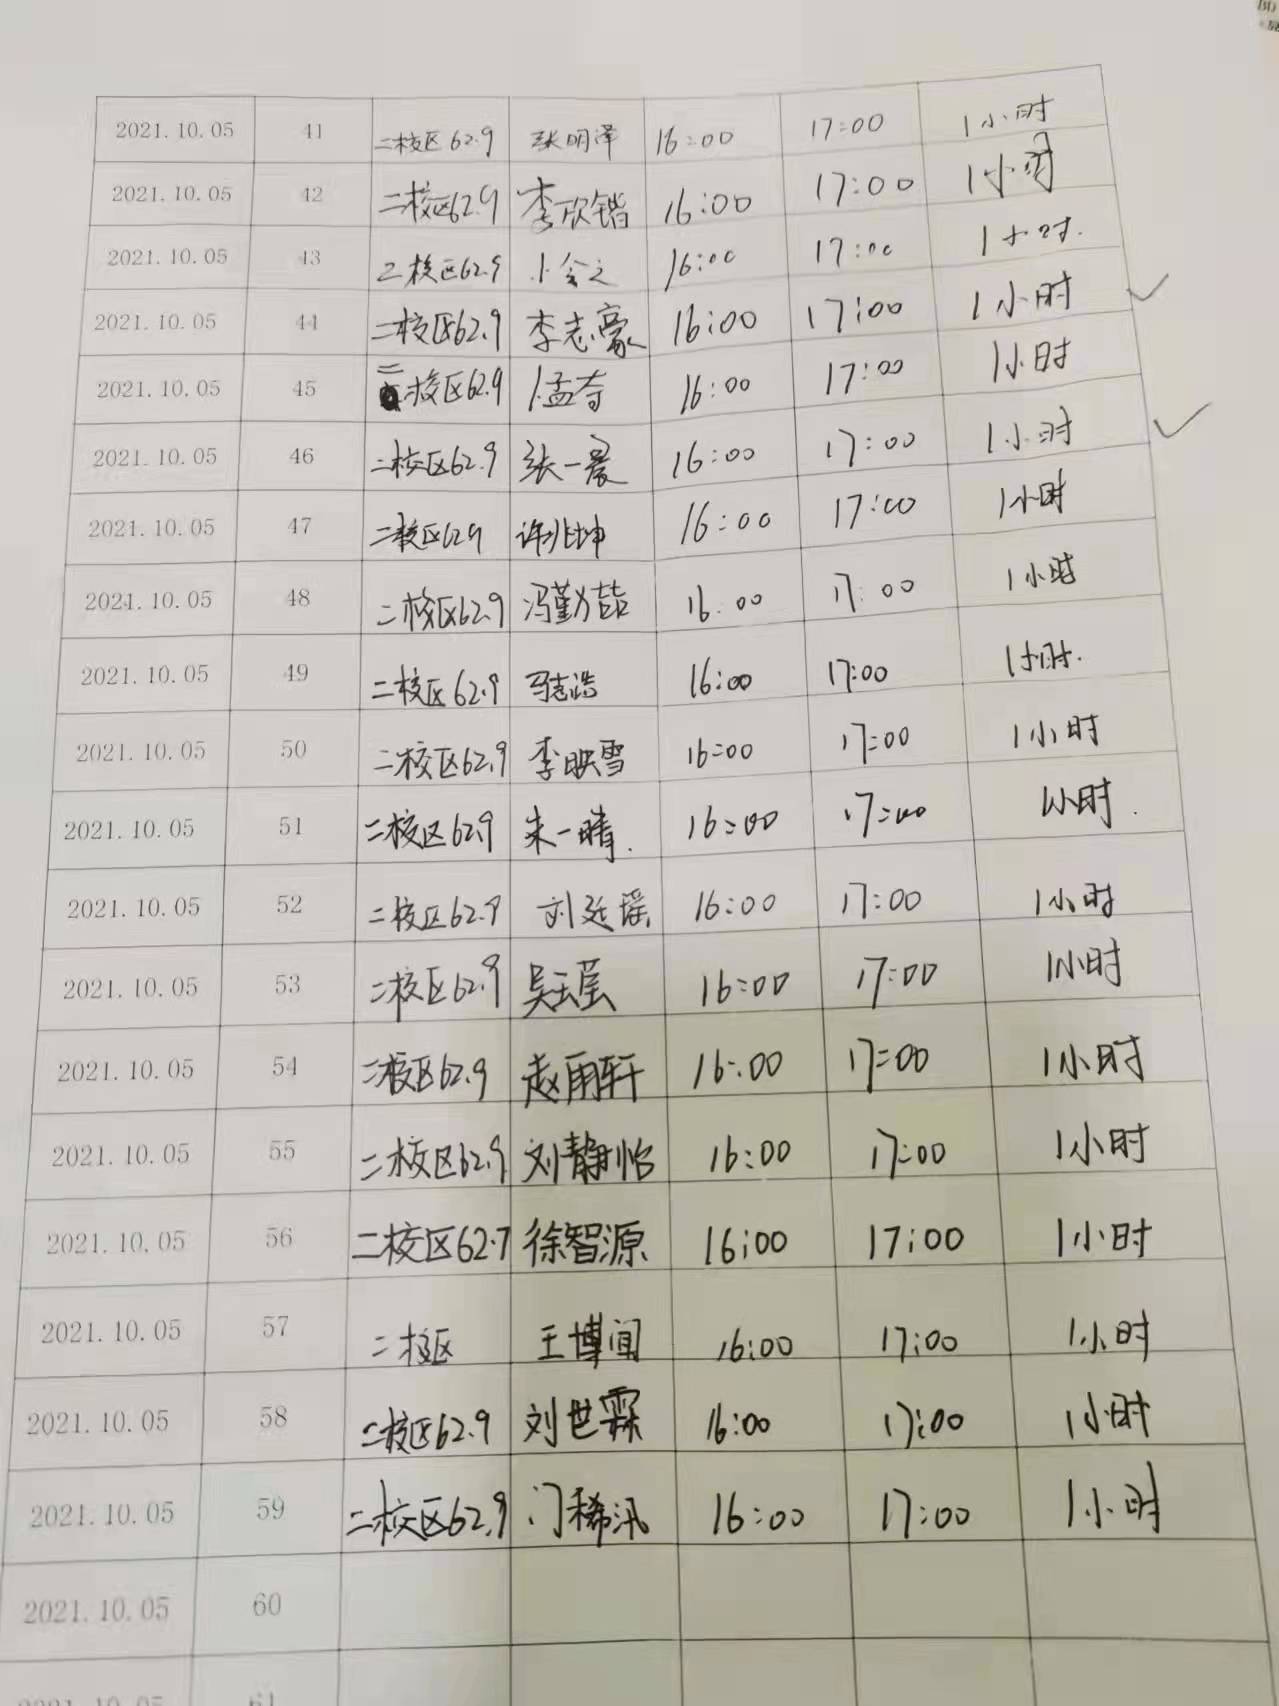 2021.10.05 41 二校区62.9 张明泽 16:00 17:00 1小时
2021.10.05 42 二校区62.9 李欣锴 16:00 17:00 1小时
2021.10.05 43 二校区62.9 16:00 17:00 1小时.
2021.10.05 44 二校区62.9 李志豪 16:00 17:00 1小时
2021.10.05 45 二校区62.9 16:00 17:00 1小时
2021.10.05 46 二校区62.9 张一晨 16:00 17:00 1小时
2021.10.05 47 二校区62.9 许兆坤 16:00 17:00 1小时
2021.10.05 48 二校区62.9 冯勤喆 16:00 17:00 1小时
2021.10.05 49 二校区62.9 马志浩 16:00 17:00 1小时.
2021.10.05 50 二校区62.9 李映雪 16:00 17:00 1小时
2021.10.05 51 二校区62.9 朱一晴. 16:00 17:00 1小时.
2021.10.05 52 二校区62.9 刘廷瑶 16:00 17:00 1小时
2021.10.05 53 二校区62.9 16:00 17:00 1小时
2021.10.05 54 二校区62.9 赵雨轩 16:00 17:00 1小时
2021.10.05 55 二校区62.9 刘静怡 16:00 17:00 1小时
2021.10.05 56 二校区62.7 徐智源 16:00 17:00 1小时
2021.10.05 57 二校区 王博闻 16:00 17:00 1小时
2021.10.05 58 二校区62.9 刘世霖 16:00 17:00 1小时
2021.10.05 59 二校区62.9 门稀汛 16:00 17:00 1小时
2021.10.05 60
2021.10.05 61